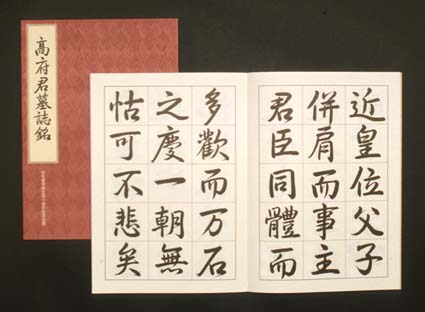 高府君墓誌銘
近皇位父子
併肩而事主
君臣同體而
多歡而万石
之慶一朝無
怙可不悲矣